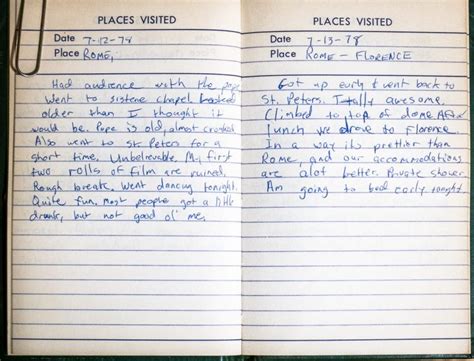 PLACES VISITED
Date 7-12-78
Place ROME,
Had audience with the pope
Went to sistene chapel looked
older than I thought it
would be. Pope is old, almost croaked
Also went to St Peters for a
short time, Unbelievable, My first
two rolls of film are ruined,
Rough break, Went dancing tonight.
Quite fun, most people got a little
drunk, but not good ol' me.
PLACES VISITED
Date 7-13-78
Place ROME - FLORENCE
Got up early & went back to
St. Peters. Totally awesome.
Climbed to top of dome After
lunch we drove to Florence
In a way its prettier than
Rome, and our accommodations
are alot better. Private shower.
Am going to bed early tonight.